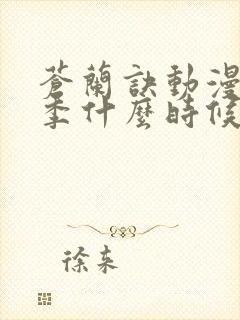 蒼蘭訣動漫
季什麼時候
徐來